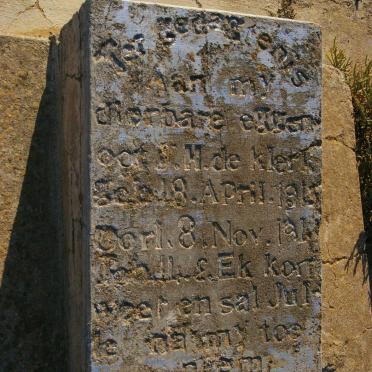 Ter gedagtenis
aan my
dierbare eggen
oot J. H. de klerk
Geb. 18. April. 18
Oorl. 8. Nov. 19
Joh. 14. & Ek kom
weer en sal Jul
le na my toe
neem